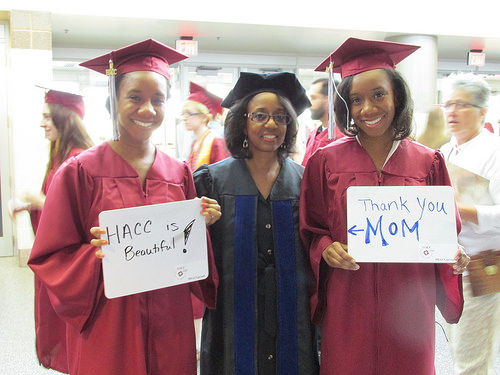 HACC is
Beautiful!
Thank You
←MOM